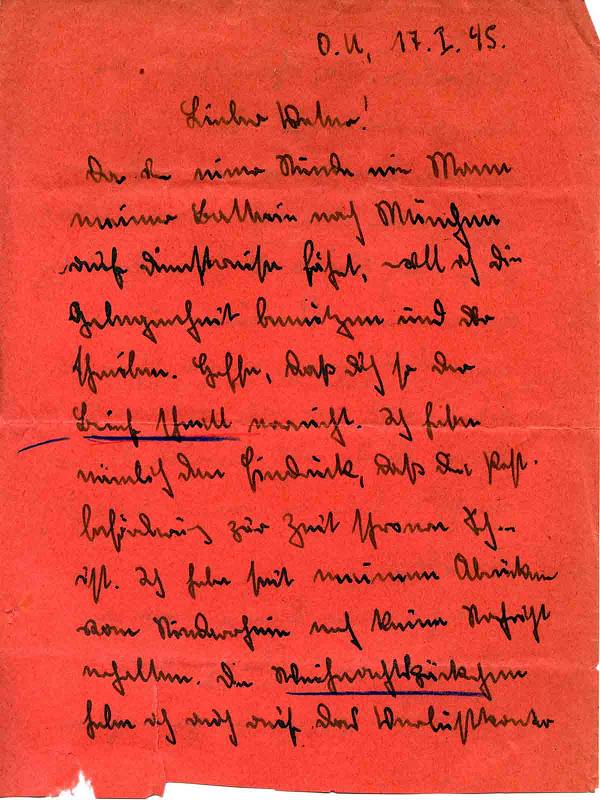 O.U, 17.I.45.
Lieber Vater!
Da in einer Stunde ein Mann
meiner Batterie nach München
auf Dienstreise fährt, will ich die
Gelegenheit benützen und Dir
schreiben. Hoffe, daß Dich so der
Brief schnell erreicht. Ich habe
nämlich den Eindruck, daß die Post-
beförderung zur Zeit schwer
ist. Ich habe seit meinem Abrücken
vom Niederrhein noch keine Nachricht
erhalten. Die Weihnachtspäckchen
habe ich auch auf das Verlustkonto